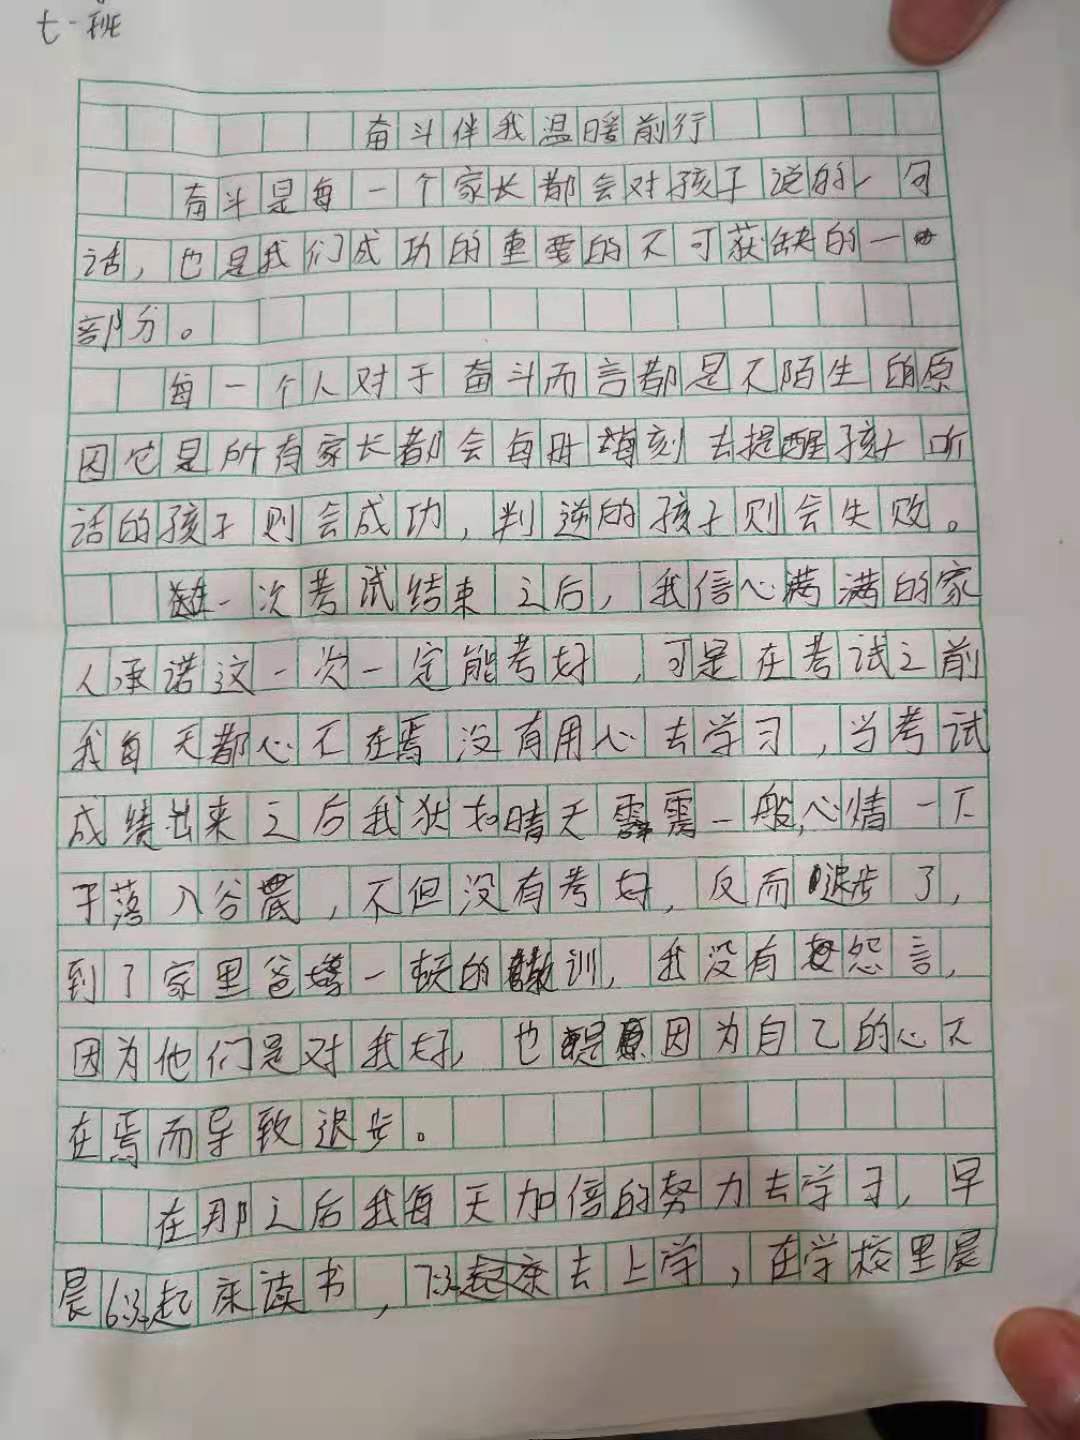 七一班
奋斗伴我温暖前行
奋斗是每一个家长都会对孩子说的一句
话，也是我们成功的重要的不可获缺的一
部分。
每一个人对于奋斗而言都是不陌生的原
因它是所有家长都会每时每刻去提醒孩子听
话的孩子则会成功，判逆的孩子则会失败。
在一次考试结束之后，我信心满满的家
人承诺这一次一定能考好，可是在考试之前
我每天都心不在焉没有用心去学习，当考试
成绩出来之后我犹如晴天霹雳一般，心情一下
子落入谷底，不但没有考好，反而退步了，
到了家里爸妈一顿的教训，我没有怨言，
因为他们是对我好，也是因为自己的心不
在焉而导致退步。
在那之后我每天加倍的努力去学习，早
晨6:30起床读书，7:30去上学，在学校里晨